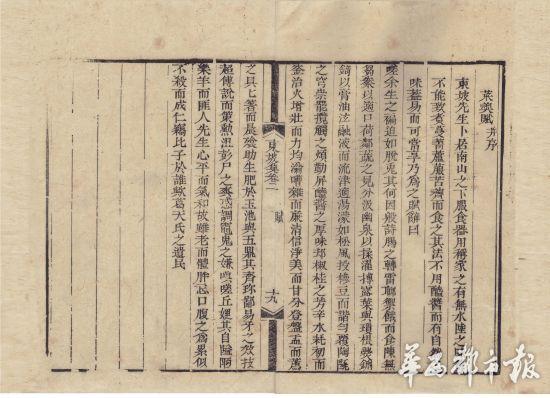 菜羹賦 并序
東坡先生卜居南山之下服食器用稱家之有無水陸之
不能致煑蔓菁蘆菔苦薺而食之其法不用醯醬而有自然
味蓋易而可常享乃爲之賦辭曰
嗟余生之褊迫如脫兔其何因殷詩腸之轉雷聊禦餓而食陳無
芻豢以適口荷鄰蔬之見分汲幽泉以揉濯摶露葉與瓊根爨鉶
錡以膏油泫融液而流津適湯濛如松風投糝豆而諧勻覆陶甌
之穹崇罷攪觸之煩勤屏醯醬之厚味却椒桂之芳辛水耗初而
釜治火增壯而力均滃嘈雜而麋清信淨美而甘分登盤盂而薦
東坡集卷二 賦 十九
之具匕箸而晨飧助生肥於玉池與五鼎其齊珍鄙易牙之效技
超傅說而策勲沮彭尸之爽惑調竈鬼之嫌嗔嗟丘嫂其自隘陋
樂羊而匪人先生心平而氣和故雖老而體胖忘口腹之爲累似
不殺而成仁竊比予於誰歟葛天氏之遺民
華西都市報